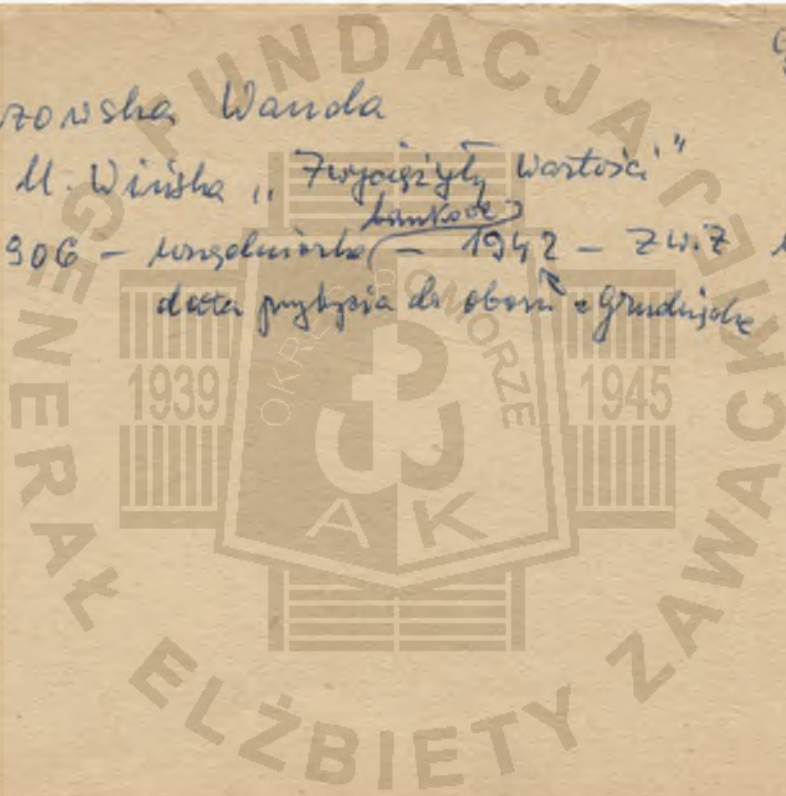 zowska Wanda
U. Wińska „Zwyciężyły Wartości"
bankowa
906 – urzędniczka – 1942 – ZWZ
data przybycia do obozu z Grudziądza
FUNDACJA GENERAŁ ELŻBIETY ZAWACKIEJ
OKRĘG POMORZE
1939
1945
AK